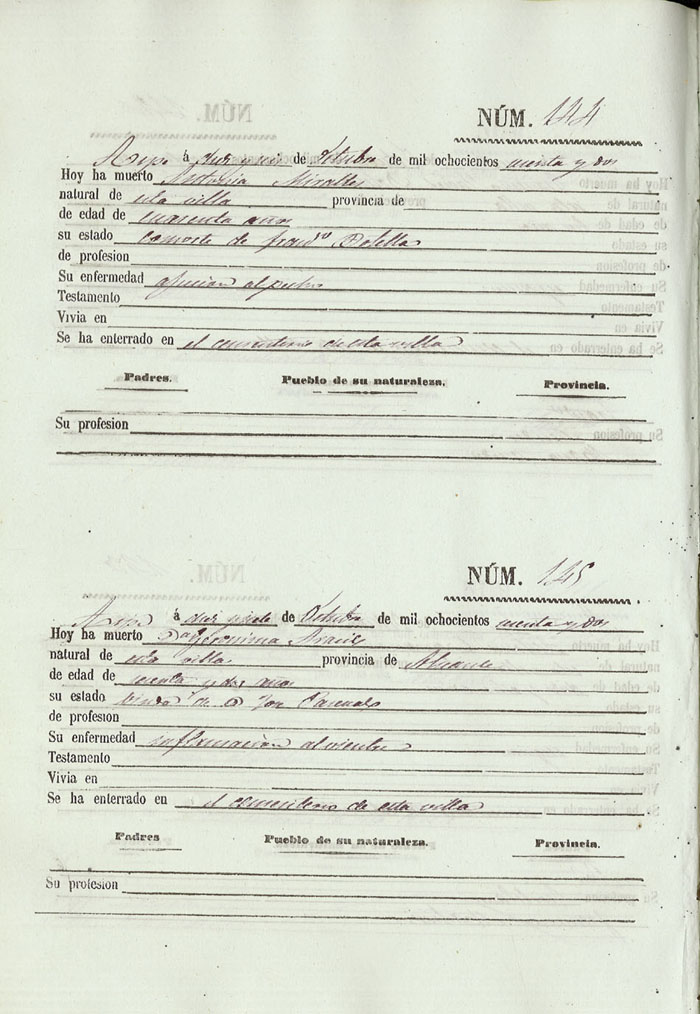 NÚM. 144
Aspe á diez y seis de Octubre de mil ochocientos sesenta y dos
Hoy ha muerto Antonia Miralles
natural de esta villa provincia de
de edad de cuarenta años
su estado consorte de Fran.co Botella
de profesion
Su enfermedad afeccion al pecho
Testamento
Vivia en
Se ha enterrado en el cementerio de esta villa
Padres. Pueblo de su naturaleza. Provincia.
Su profesion
NÚM. 145
Aspe á diez y siete de Octubre de mil ochocientos sesenta y dos
Hoy ha muerto D.a Geronima
natural de esta villa provincia de Alicante
de edad de sesenta y dos años
su estado viuda de D. Jose Pascual
de profesion
Su enfermedad inflamacion al vientre
Testamento
Vivia en
Se ha enterrado en el cementerio de esta villa
Padres Pueblo de su naturaleza. Provincia.
Su profesion